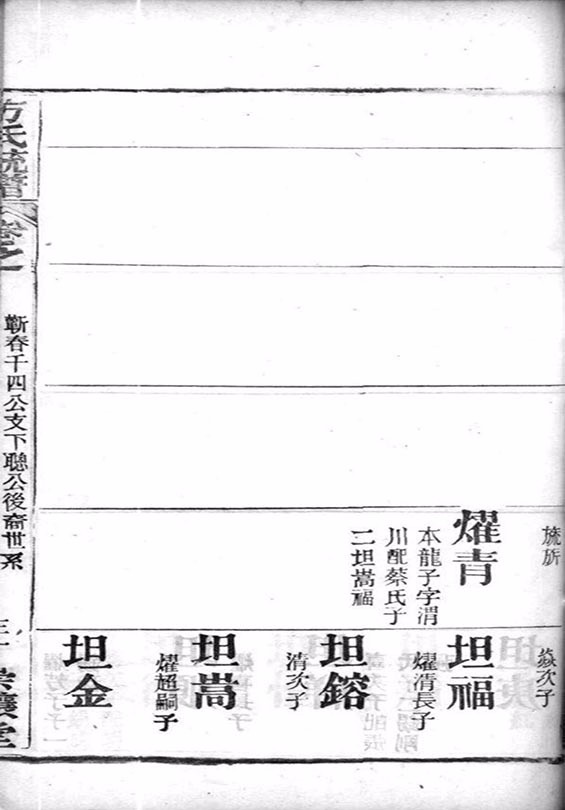 焱次子
燿青
本龍子字渭
川配蔡氏子
二坦嵩福
坦福
燿清長子
坦鎔
清次子
坦嵩
燿超嗣子
坦金
方氏統譜
卷之
蘄春千四公支下聰公後裔世系